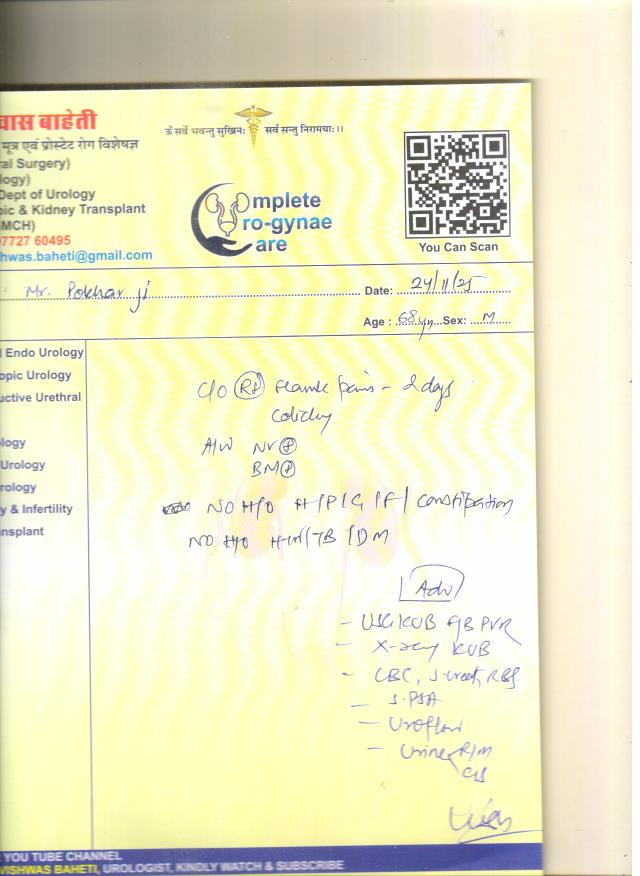 वास बाहेती
ॐ सर्वे भवन्तु सुखिनः सर्व सन्तु निरामयाः।।
मूत्र एवं प्रोस्टेट रोग विशेषज्ञ
al Surgery)
logy)
Dept of Urology
pic & Kidney Transplant
MCH)
7727 60495
hwas.baheti@gmail.com
omplete
ro-gynae
are
You Can Scan
Mr. Pokhar ji
Date: 24/11/25
Age : 68 yr Sex: M
l Endo Urology
opic Urology
uctive Urethral
logy
Urology
rology
y & Infertility
nsplant
C/O Rt flank pain - 2 days
colicky
A/W NV +
BM +
NO H/O H/P/G/F/ constipation
NO H/O H-tn/TB/DM
Adv
- USG KUB PVR
- X-ray KUB
- CBC, S-creat, RBS
- S-PSA
- Uroflow
- Urine R/M
C/S
YOU TUBE CHANNEL
VISHWAS BAHETI, UROLOGIST, KINDLY WATCH & SUBSCRIBE